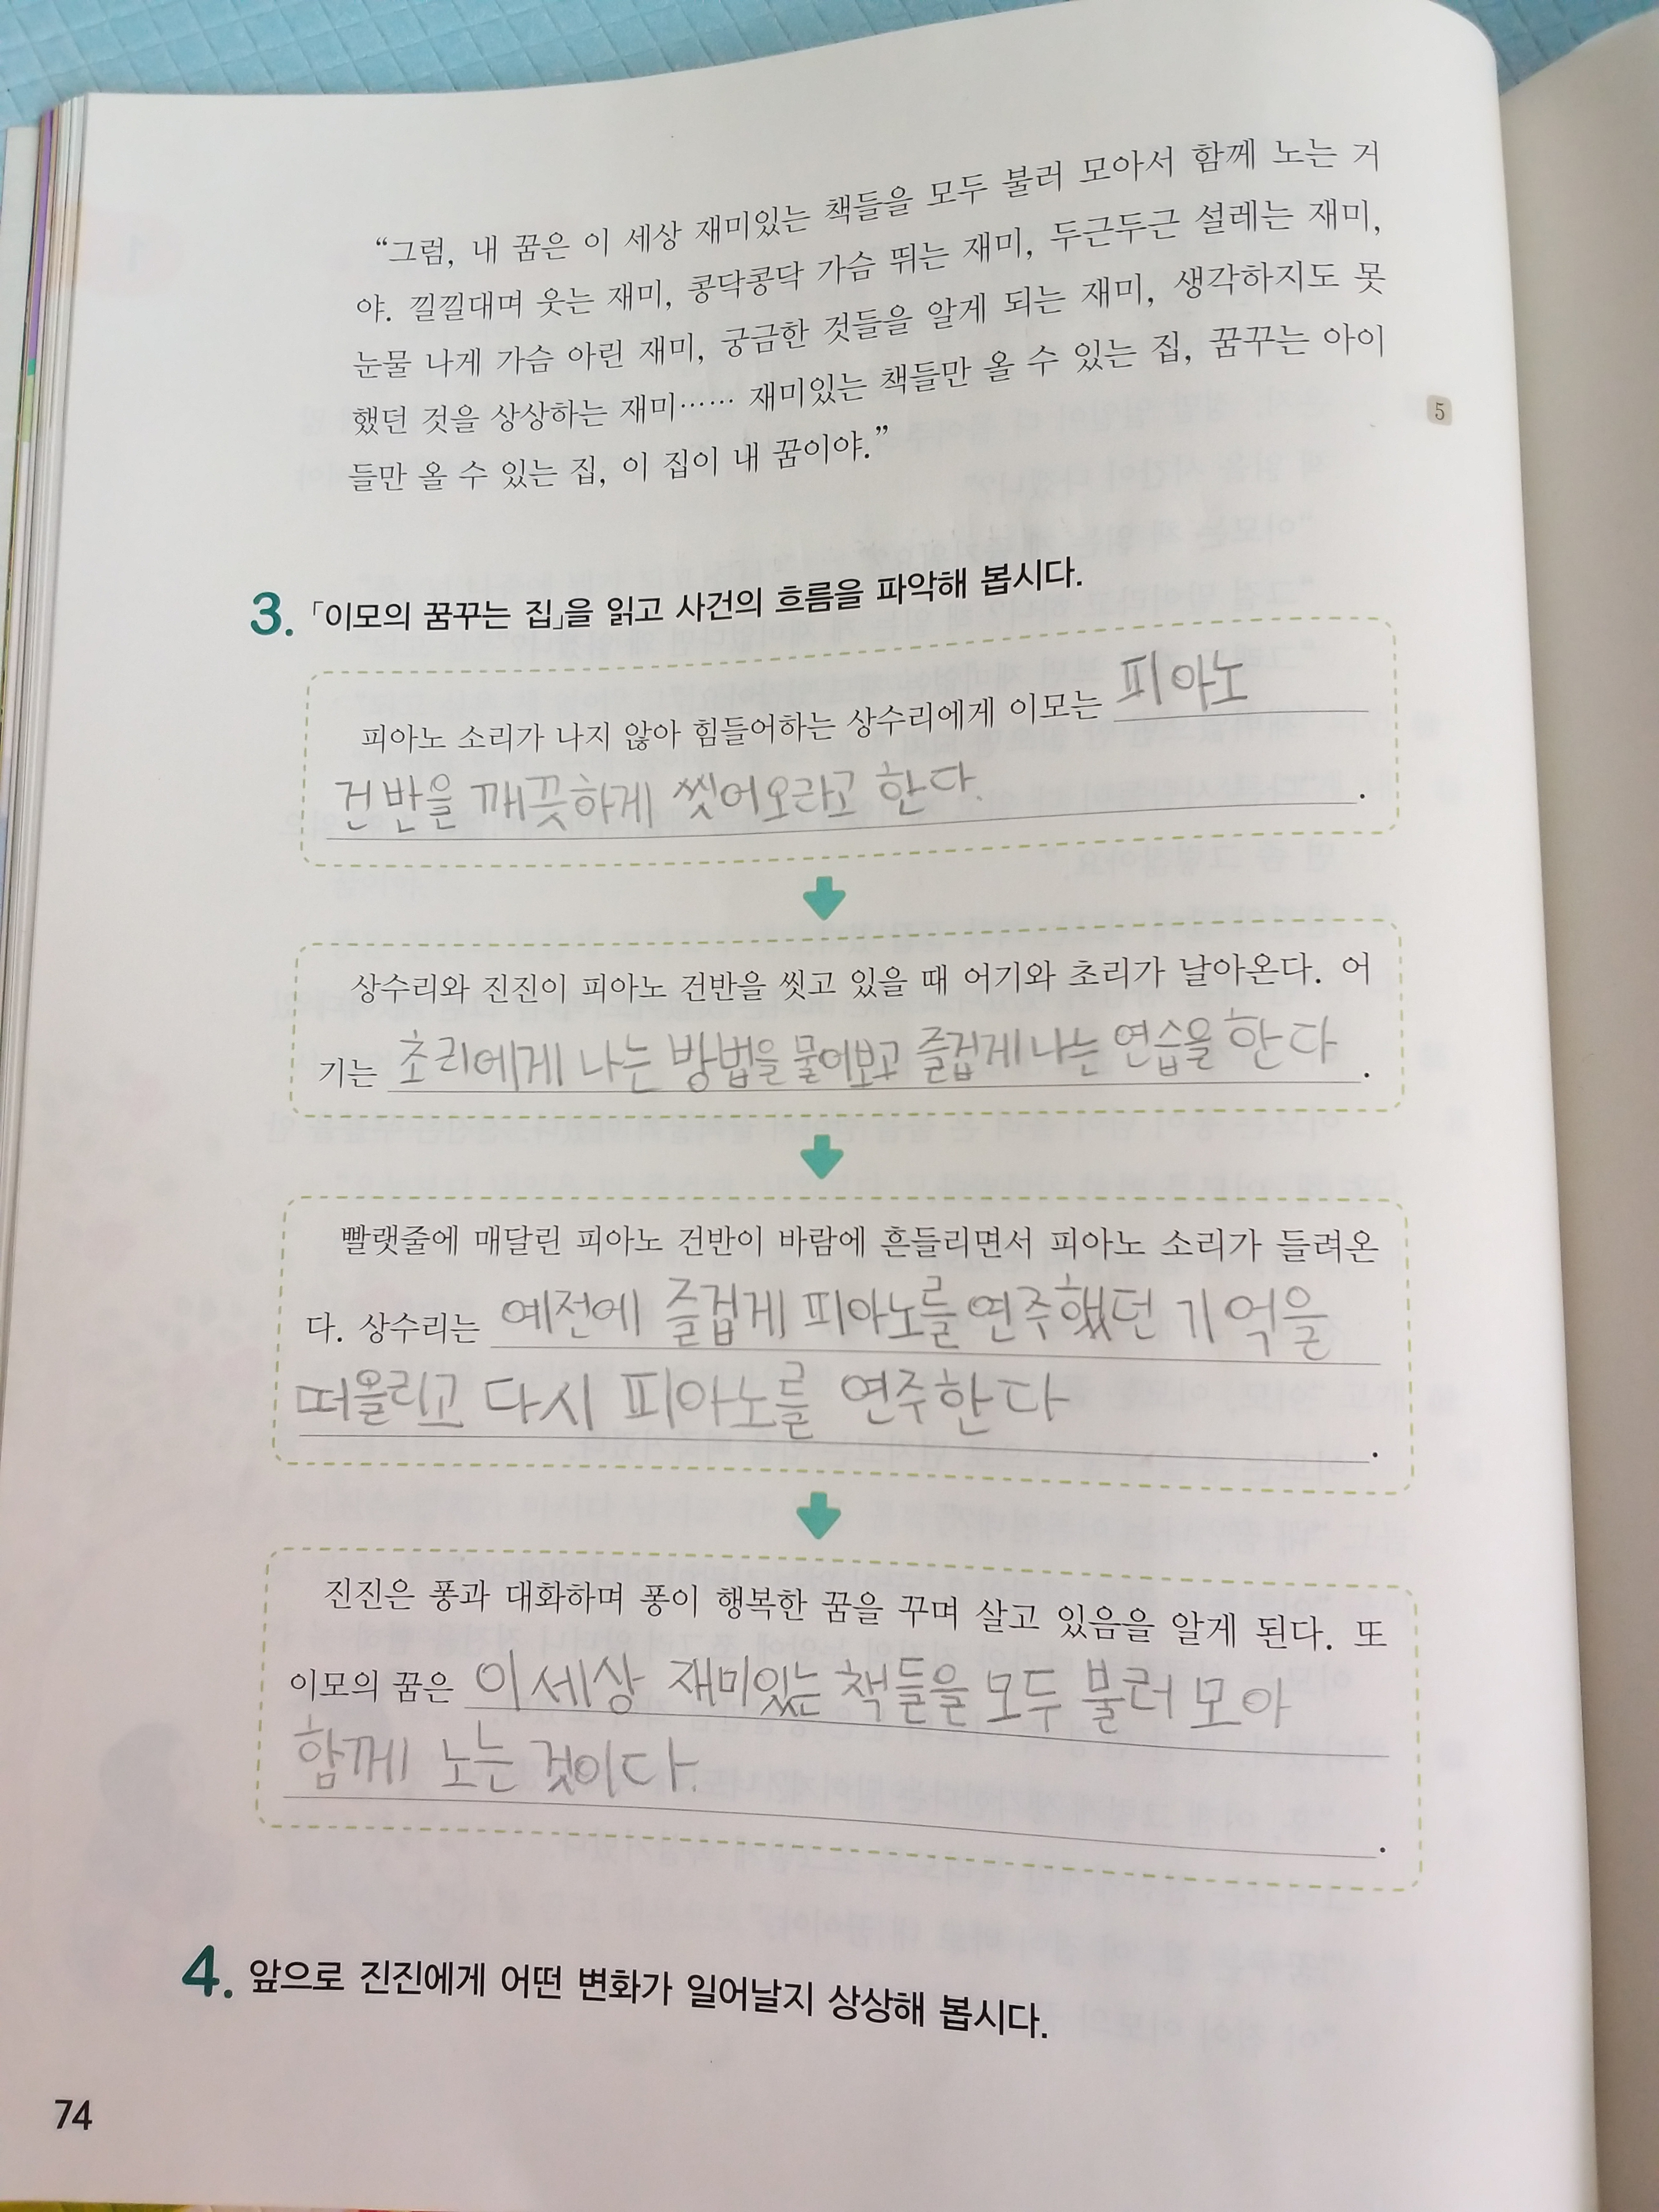 “그럼, 내 꿈은 이 세상 재미있는 책들을 모두 불러 모아서 함께 노는 거
야. 낄낄대며 웃는 재미, 콩닥콩닥 가슴 뛰는 재미, 두근두근 설레는 재미,
눈물 나게 가슴 아린 재미, 궁금한 것들을 알게 되는 재미, 생각하지도 못
했던 것을 상상하는 재미…… 재미있는 책들만 올 수 있는 집, 꿈꾸는 아이
5
들만 올 수 있는 집, 이 집이 내 꿈이야.”
3. 「이모의 꿈꾸는 집」을 읽고 사건의 흐름을 파악해 봅시다.
피아노 소리가 나지 않아 힘들어하는 상수리에게 이모는 피아노
건반을 깨끗하게 씻어오라고 한다.
상수리와 진진이 피아노 건반을 씻고 있을 때 어기와 초리가 날아온다. 어
기는 초리에게 나는 방법을 물어보고 즐겁게 나는 연습을 한다.
빨랫줄에 매달린 피아노 건반이 바람에 흔들리면서 피아노 소리가 들려온
다. 상수리는 예전에 즐겁게 피아노를 연주했던 기억을
떠올리고 다시 피아노를 연주한다.
진진은 퐁과 대화하며 퐁이 행복한 꿈을 꾸며 살고 있음을 알게 된다. 또
이모의 꿈은 이 세상 재미있는 책들을 모두 불러 모아
함께 노는 것이다.
4. 앞으로 진진에게 어떤 변화가 일어날지 상상해 봅시다.
74